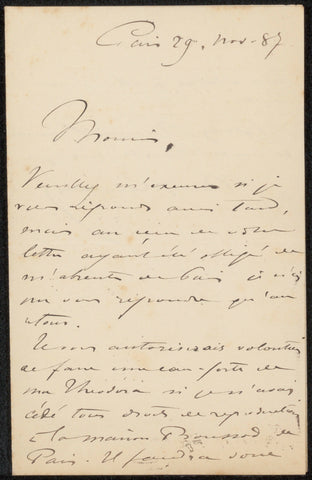 Paris 29. nov. 87
Monsieur,
Veuillez m'excuser si je
vous réponds aussi tard,
mais au reçu de votre
lettre ayant été obligé de
m'absenter de Paris je n'ai
pu vous répondre qu'au
retour.
Je vous autoriserais volontiers
de faire une eau-forte de
ma Théodora si je n'avais
cédé tous droits de reproduction
à la maison Boussod de
Paris. Il faudra donc